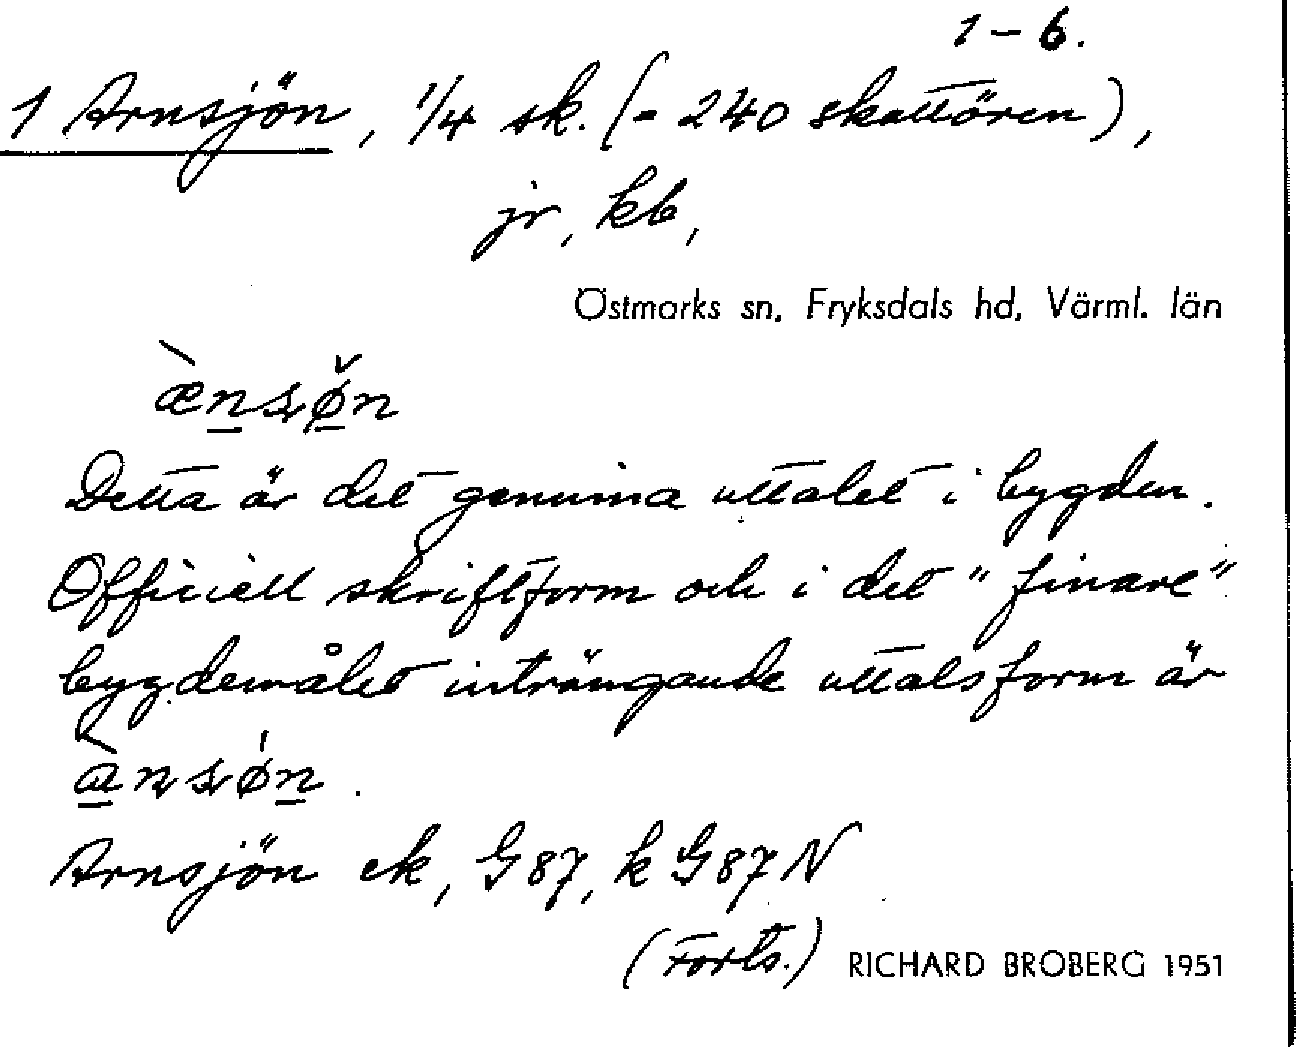 1-6.
1 Arnsjön, 1/4 sk. (= 240 skattören),
jr, kb,
Östmarks sn, Fryksdals hd, Värml. län
Detta är det genuina uttalet i bygden.
Officiell skriftform och i det "finare"
bygdemålet inträngande uttalsform är
Arnsjön ek, G87, k G87N
(Forts.) RICHARD BROBERG 1951